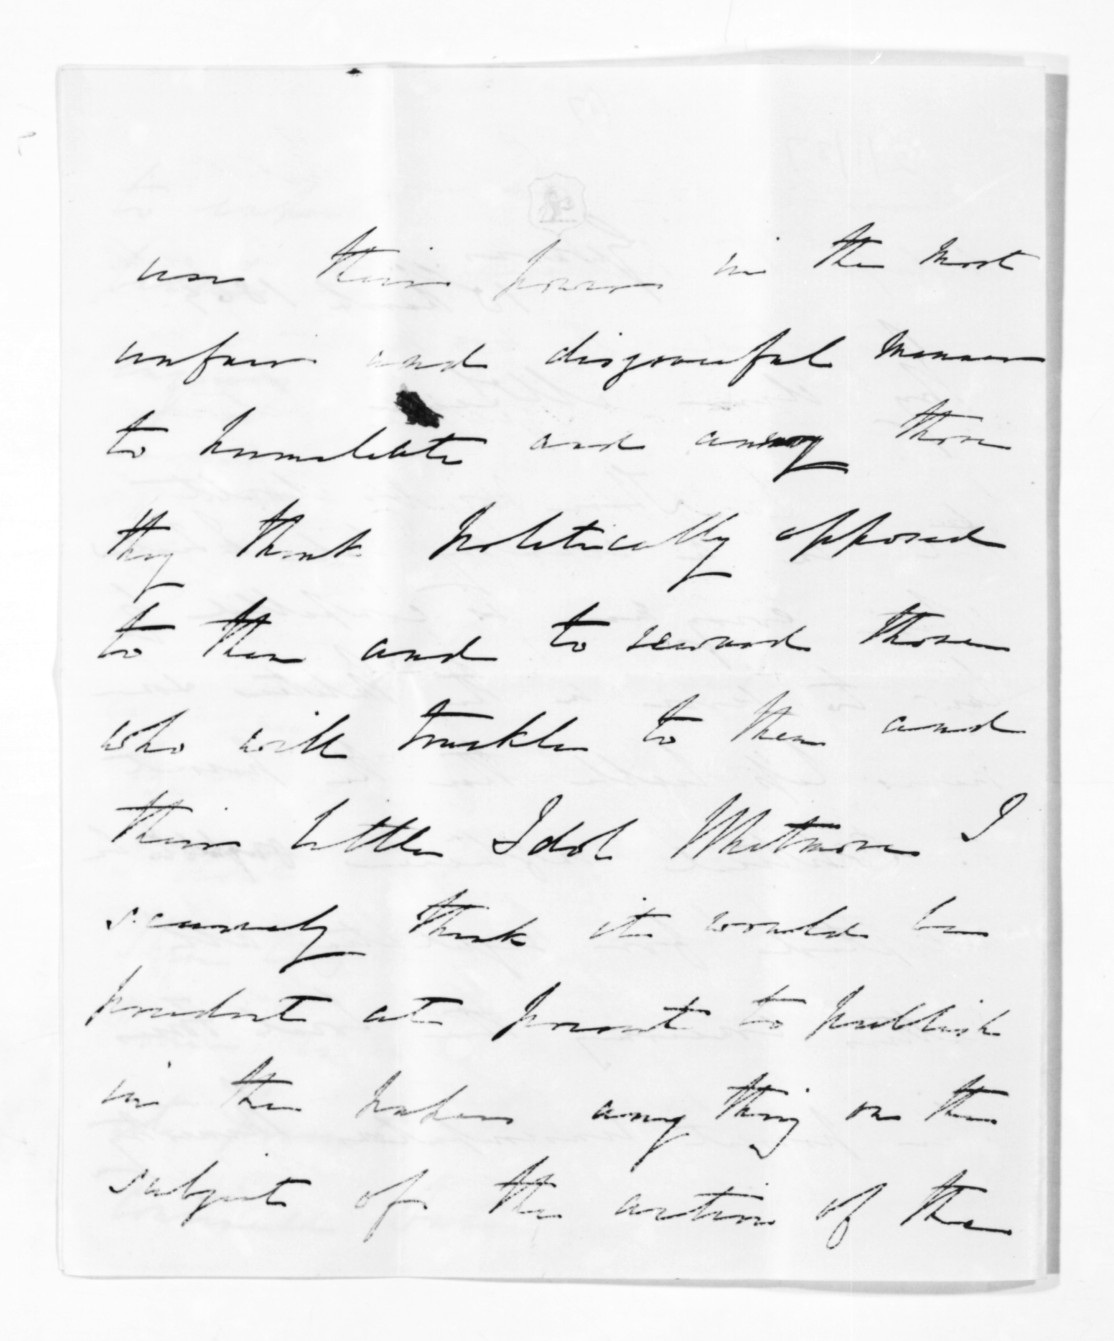 use their power in the most
unfair and disgraceful manner
to humiliate and annoy those
they think politically opposed
to them and to reward those
who will truckle to them and
their little Idol Whitmore I
scarcely think it would be
prudent at present to publish
in the papers any thing on the
subject of the action of the